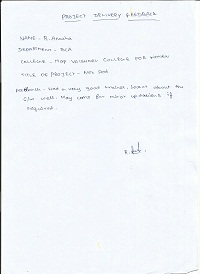 PROJECT DELIVERY FEEDBACK
NAME - R. Anusha
DEPARTMENT - BCA
COLLEGE - MOP VAISHNAV COLLEGE FOR WOMEN
TITLE OF PROJECT -
was a very good trainer. Learnt about the
well. May come for minor updations if
required.